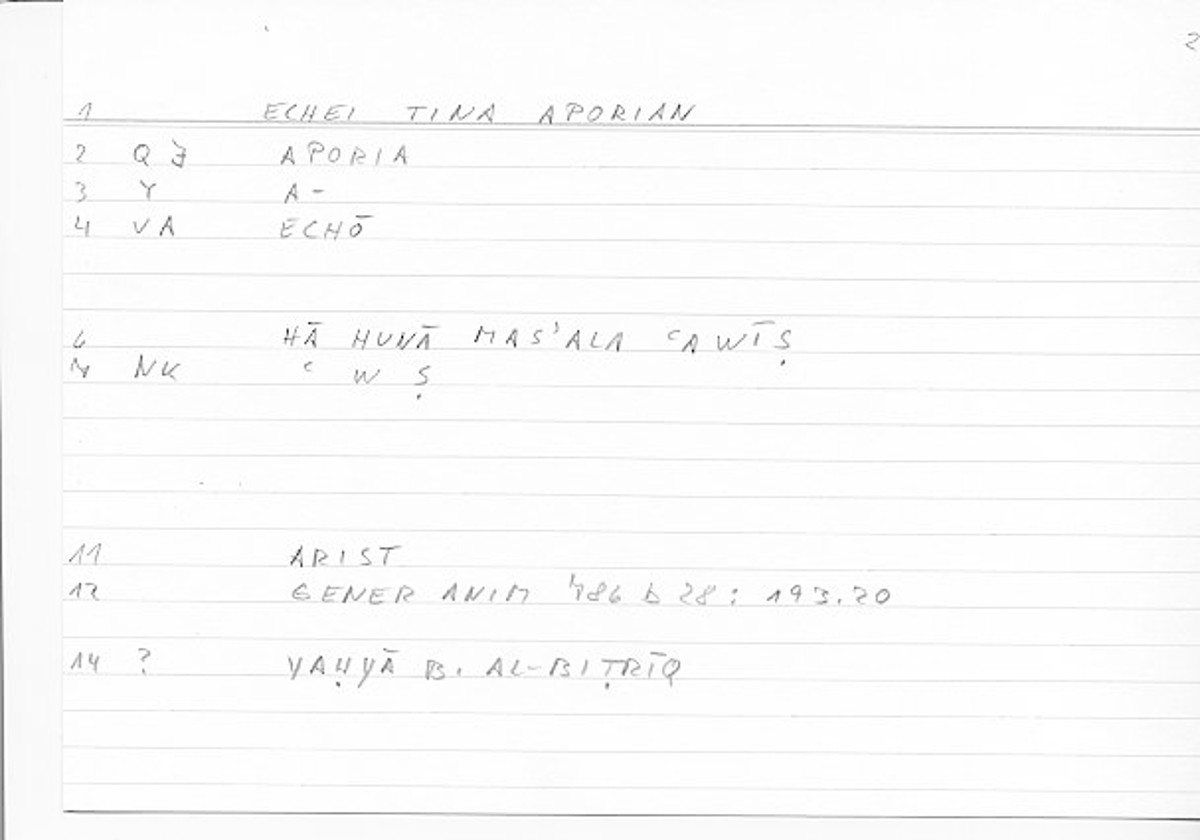 2
1 ECHEI TINA APORIAN
2 Q APORIA
3 Y A-
4 VA ECHŌ
6 HĀ HUNĀ MASʾALA ʿAWĪṢ
7 NK ʿ W Ṣ
11 ARIST
12 GENER ANIM 786 b 28 : 193.20
14 ? YAḤYĀ B. AL-BIṬRĪQ